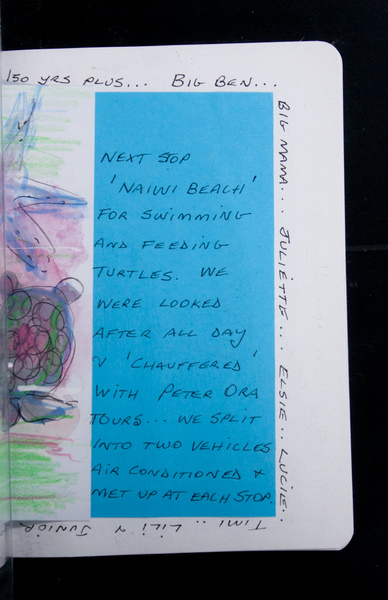 150 YRS PLUS... BIG BEN...
BIG MAMA... JULIETTE... ELSIE.. LUCIE..
TIMI.. LILI N JUNIOR
NEXT STOP
'NAIWI BEACH'
FOR SWIMMING
AND FEEDING
TURTLES. WE
WERE LOOKED
AFTER ALL DAY
N 'CHAUFFERED'
WITH PETER ORA
TOURS... WE SPLIT
INTO TWO VEHICLES
AIR CONDITIONED &
MET UP AT EACH STOP.